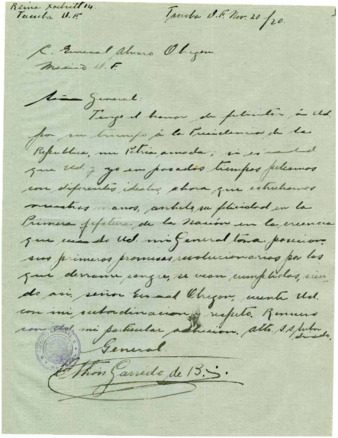 Reina Xochitl 14.
Tacuba D.F.
Tacuba D.F. Nov. 20/20.
C. General Alvaro Obregon
Mexico D.F.
General.
Tengo el honor de felicitar á Ud.
por su triunfo á la Presidencia de la
Republica, mi Patria amada, si es verdad
que Ud. y yo en pasados tiempos peleamos
con diferentes ideales, ahora que estrechamos
nuestras manos, anhelo su felicidad en la
Primera Jefatura, de la Nación en la creencia
que cuando Ud. mi General tome posesion
sus primeras promesas revolucionarias por las
que derramó sangre, se vean cumplidas, sien-
do asi, señor General Obregon, cuente Ud.
con mi subordinacion y respeto, Renuevo
con Ud. mi particular adhesion, atto. s.s.
General
Garredo de B.